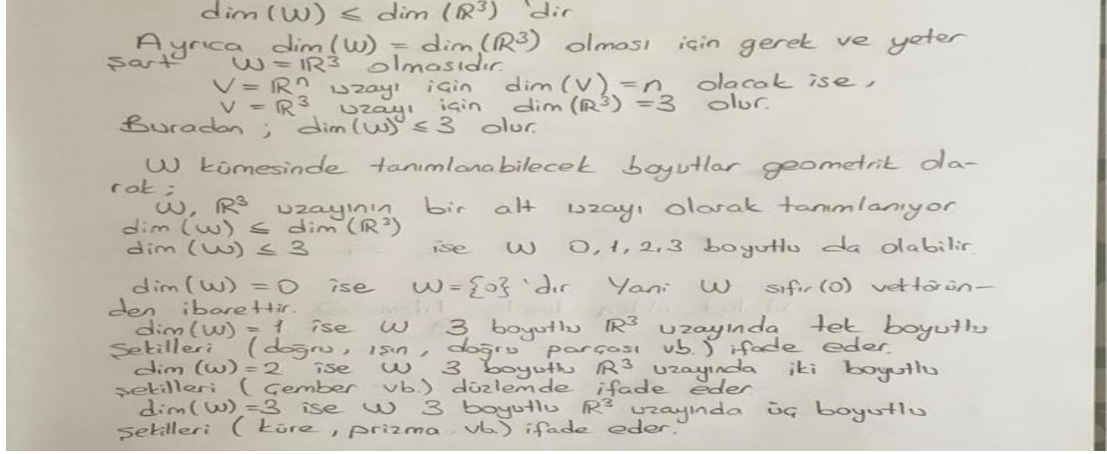 dim(W) ≤ dim (ℝ³) 'dir
Ayrıca dim(W) = dim(ℝ³) olması için gerek ve yeter
şart W = ℝ³ olmasıdır.
V = ℝⁿ uzayı için dim(V) = n olacak ise,
V = ℝ³ uzayı için dim(ℝ³) = 3 olur.
Buradan ; dim(W) ≤ 3 olur.
W kümesinde tanımlanabilecek boyutlar geometrik ola-
rak ;
W, ℝ³ uzayının bir alt uzayı olarak tanımlanıyor
dim (W) ≤ dim (ℝ³)
dim (W) ≤ 3 ise W 0,1,2,3 boyutlu da olabilir.
dim(W) = 0 ise W = {0} 'dır Yani W sıfır(0) vektörün-
den ibarettir.
dim(W) = 1 ise W 3 boyutlu ℝ³ uzayında tek boyutlu
şekilleri (doğru, ışın, doğru parçası vb.) ifade eder.
dim (W) = 2 ise W 3 boyutlu ℝ³ uzayında iki boyutlu
şekilleri (çember vb.) düzlemde ifade eder
dim(W) = 3 ise W 3 boyutlu ℝ³ uzayında üç boyutlu
şekilleri (küre, prizma vb.) ifade eder.